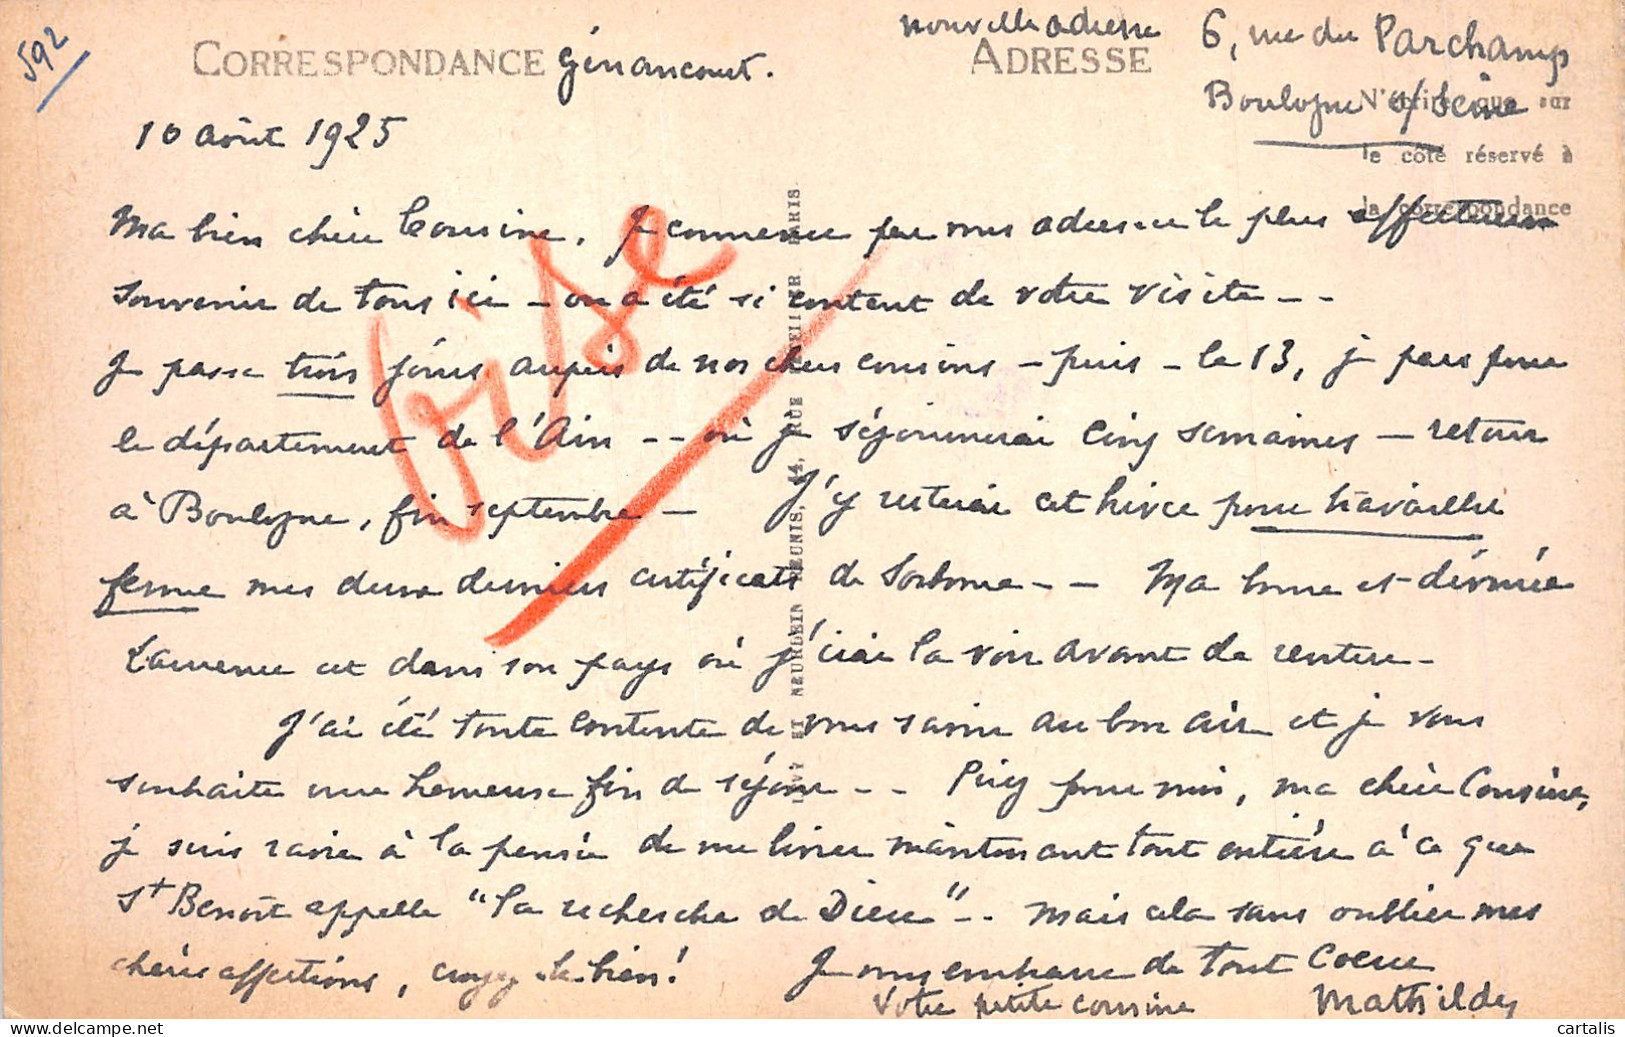 592
CORRESPONDANCE Génancourt.
nouvelle adresse 6, rue du Parchamp
ADRESSE
Boulogne s/ Seine
N'écrire que sur
le côté réservé à
la correspondance
10 août 1925
Ma bien chère Cousine. Je commence par vous adresser le plus affectueux
souvenir de tous ici – on a été si content de votre visite – –
Je passe trois jours auprès de nos chers cousins – puis – le 13, je pars pour
le département de l'Ain – – où je séjournerai cinq semaines – retour
à Boulogne, fin septembre – J'y resterai cet hiver pour travailler
ferme mes deux derniers certificats de Sorbonne – – Ma bonne et dévouée
Laurence est dans son pays où j'irai la voir avant de rentrer –
J'ai été toute contente de vous savoir au bon air et je vous
souhaite une heureuse fin de séjour – – Priez pour moi, ma chère Cousine,
je suis ravie à la pensée de me livrer maintenant tout entière à ce que
St Benoît appelle "la recherche de Dieu" – – mais cela sans oublier mes
chères affections, croyez-le bien! Je vous embrasse de tout Coeur
Votre petite cousine Mathilde
LEVY ET NEURDEIN RÉUNIS, 44, RUE LETELLIER PARIS
cartalis